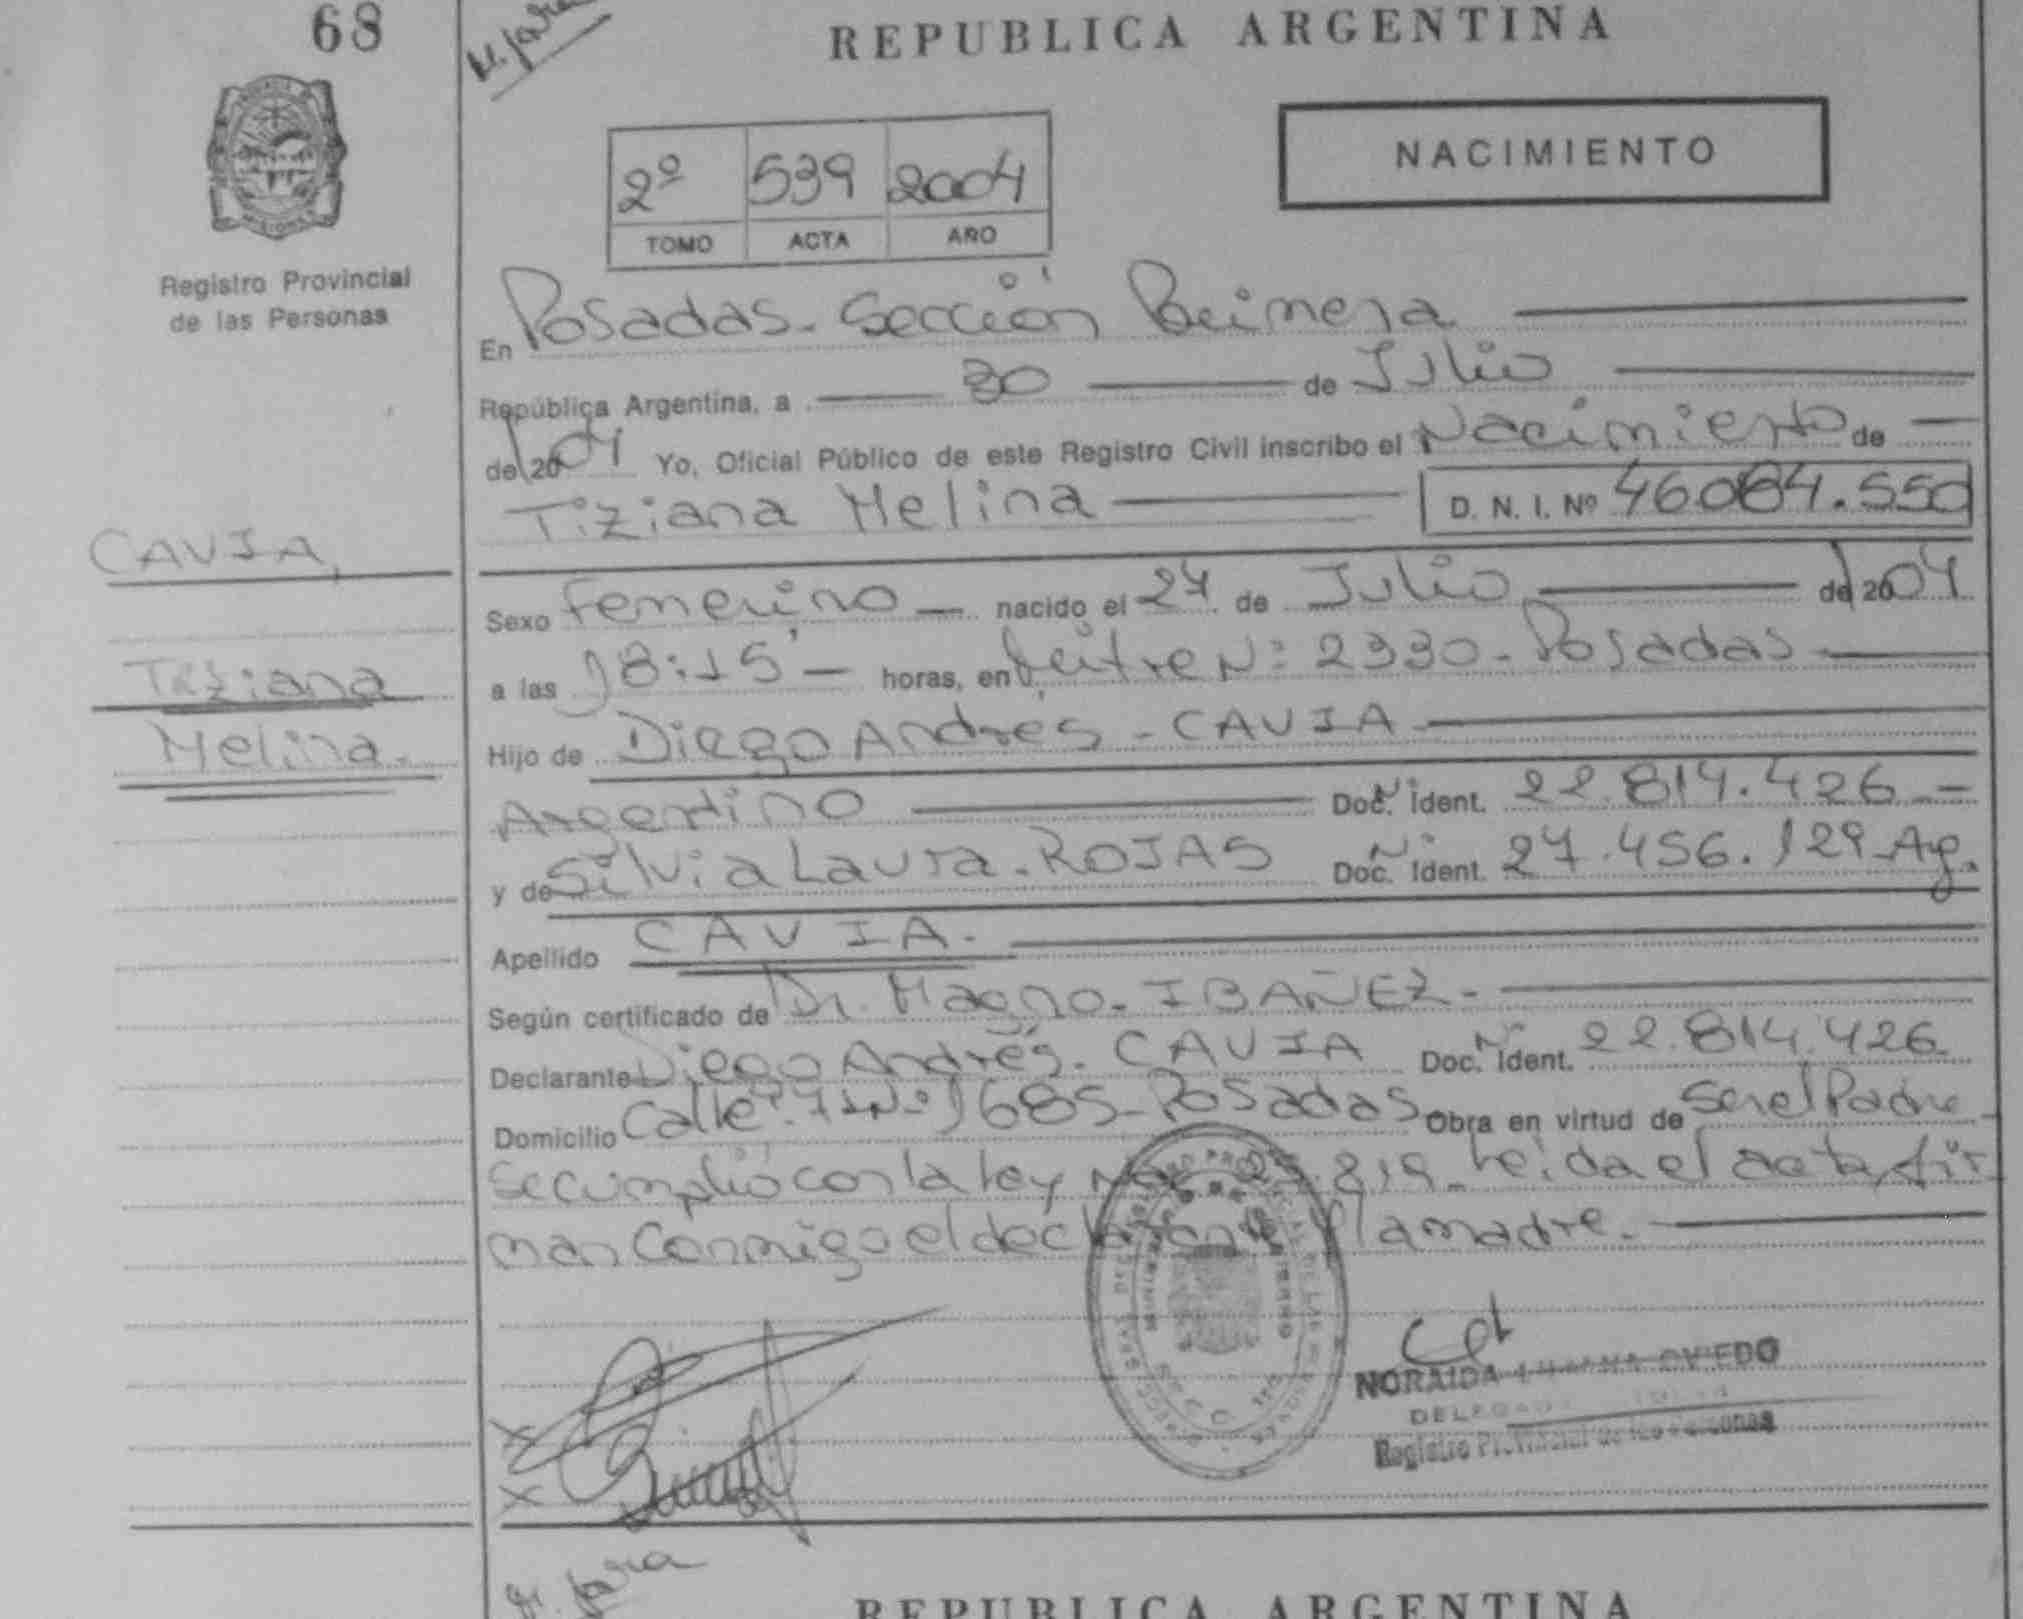 68
M. Jara
REPUBLICA ARGENTINA
NACIMIENTO
2º 539 2004
TOMO ACTA AÑO
Registro Provincial
de las Personas
En Posadas - Sección Primera
República Argentina, a 30 de Julio
del 2004 Yo, Oficial Público de este Registro Civil inscribo el Nacimiento de
Tiziana Melina D. N. I. Nº 46.084.550
CAVIA,
Tiziana
Melina.
Sexo Femenino nacido el 27 de Julio del 2004
a las 18:15' horas, en Mitre Nº 2330 - Posadas
Hijo de Diego Andrés - CAVIA
Argentino Doc. Nº Ident. 22.814.426 -
y de Silvia Laura - ROJAS Doc. Nº Ident. 27.456.129 Ag.
Apellido CAVIA.
Según certificado de Dr. Magno - IBAÑEZ -
Declarante Diego Andrés - CAVIA Doc. Nº Ident. 22.814.426
Domicilio Calle 1685 - Posadas Obra en virtud de Ser el Padre
Se cumplió con la ley 819 - Leída el acta, fir
man Conmigo el declarante y la madre. -
NORAIDA OVIEDO
Registro Provincial de las Personas
M. Jara
REPUBLICA ARGENTINA